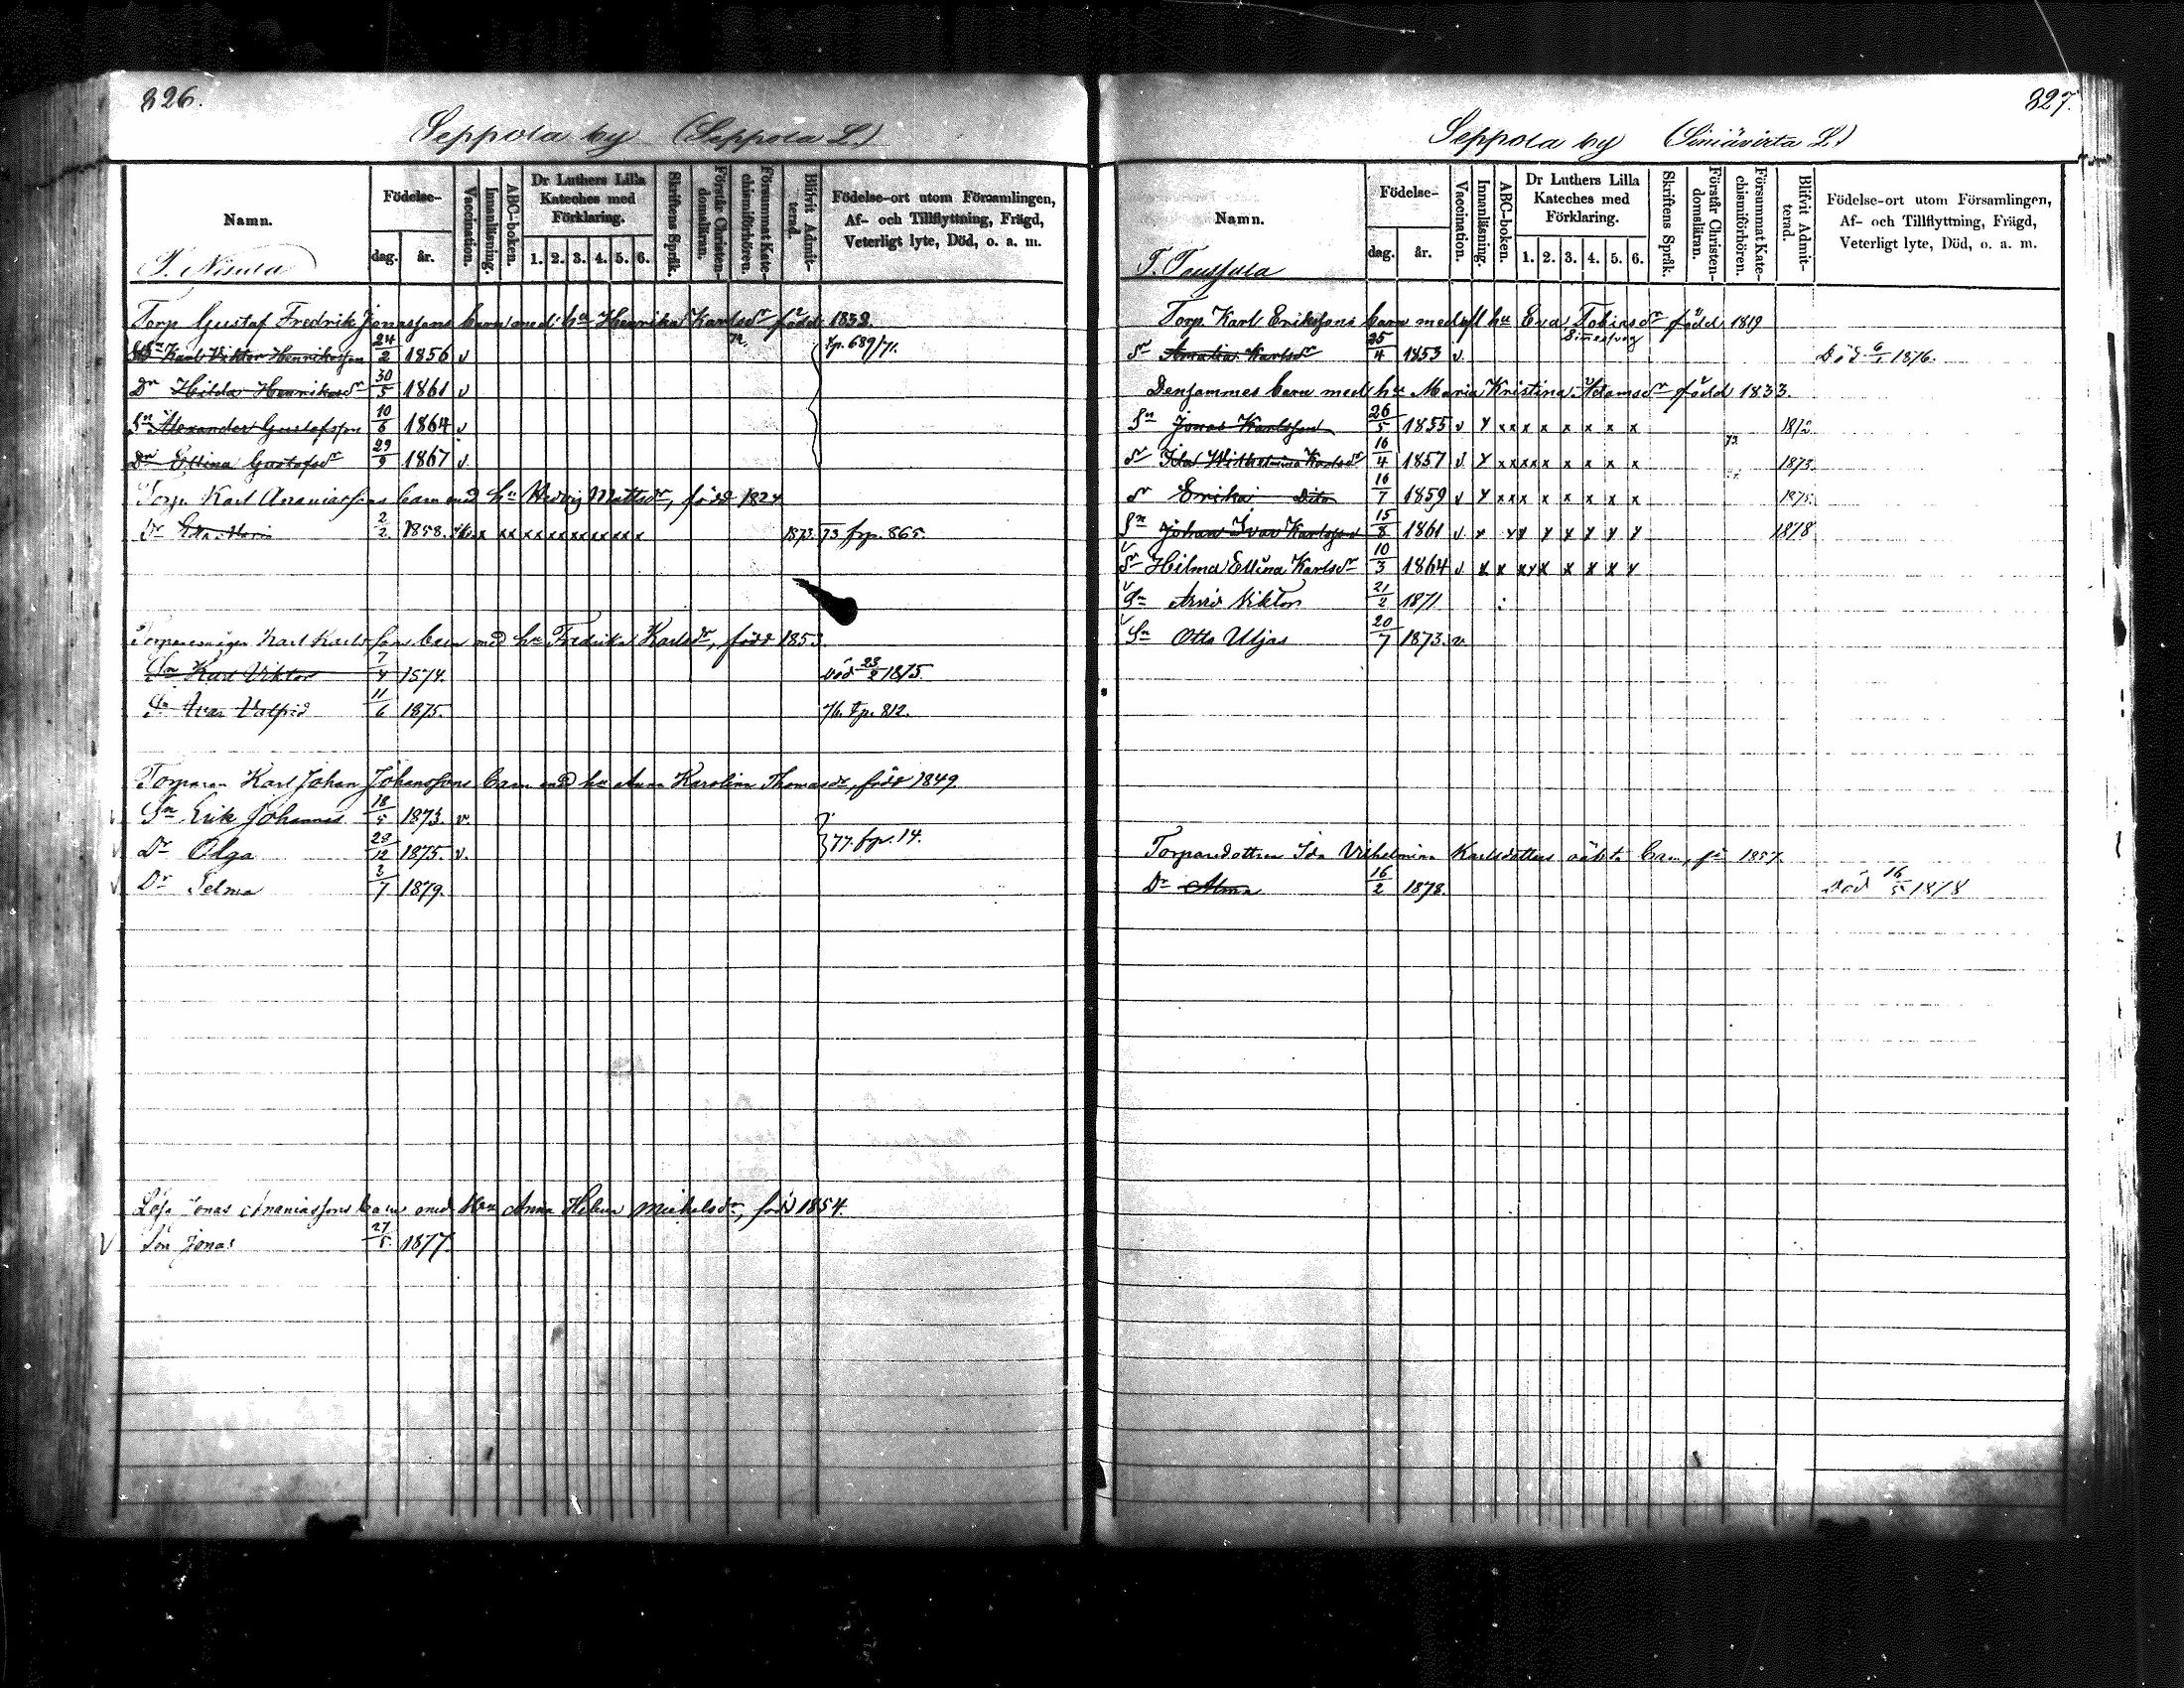 326.
Seppola by (Seppola L.)
Namn.
Födelse-
dag. år.
Vaccination.
Innanläsning.
ABC-boken.
Dr Luthers Lilla Kateches med Förklaring.
1. 2. 3. 4. 5. 6.
Skriftens Språk.
Förstår Christendomsläran.
Försummat Katechismiförhören.
Blifvit Admitterad.
Födelse-ort utom Församlingen,
Af- och Tillflyttning, Frägd,
Veterligt lyte, Död, o. a. m.
T. Nisula
Torp Gustaf Fredrik Jonassons barn med h:u Henrika Karlsdr född 1832.
Karl Viktor Henriksson 24/2 1856 v 72. Fp. 689/71.
Dr Hilda Henriksdr 30/5 1861 v
Sn Alexander Gustafsson 10/6 1864 v
Dr Ellina Gustafsdr 29/9 1867 v.
Torp Karl Ananiassons barn med hu Hedvig Mattsdr, född 1824
Dr Eda Maria 2/2 1858. x xx xx xx xx xx xx 1873. 73 frp. 865.
Karl Karlssons barn med hu Fredrika Karlsdr, född 1853.
Sn Karl Viktor 7/4 1874. död 23/2 1875.
Sn Ivar Valfrid 11/6 1875. 76. Fp. 812.
Torparen Karl Johan Johanssons barn med hu Anna Karolina Thomasdr, född 1849.
V Sn Erik Johannes 18/5 1873. v.
V Dr Olga 28/12 1875. v. 77. frp. 14.
V Dr Selma 3/7 1879.
Jonas Ananiassons barn med Anna Helena Mickelsdr, född 1854.
V Son Jonas 27/5 1877.
327.
Seppola by (Siniävirta L.)
Namn.
Födelse-
dag. år.
Vaccination.
Innanläsning.
ABC-boken.
Dr Luthers Lilla Kateches med Förklaring.
1. 2. 3. 4. 5. 6.
Skriftens Språk.
Förstår Christendomsläran.
Försummat Katechismiförhören.
Blifvit Admitterad.
Födelse-ort utom Församlingen,
Af- och Tillflyttning, Frägd,
Veterligt lyte, Död, o. a. m.
Torp. Karl Erikssons barn med hu Eva Tobiasdr född 1819
Dr Amalia Karlsdr 25/4 1853 v. Död 6/1 1876.
Densammes barn med hu Maria Kristina Adamsdr född 1833.
Sn Jonas Karlsson 26/5 1855 v x x x x x x x x x 1872
Dr Ida Wilhelmina Karlsdr 16/4 1857 v. x x x x x x x x x 73 1873
Dr Erika Dito 16/7 1859 v x x x x x x x x x 1875
Sn Johan Ivar Karlsson 15/8 1861 v. x x x x x x x x 1878
v Dr Hilma Ellina Karlsdr 10/3 1864 v x x x x x x x x x
v Sn Arvid Viktor 21/2 1871
v Sn Otto Uljas 20/7 1873. v.
Torparedottren Ida Vilhelmina Karlsdotters oäkta barn, fö 1857.
Dr Alma 16/2 1878. Död 16/5 1878